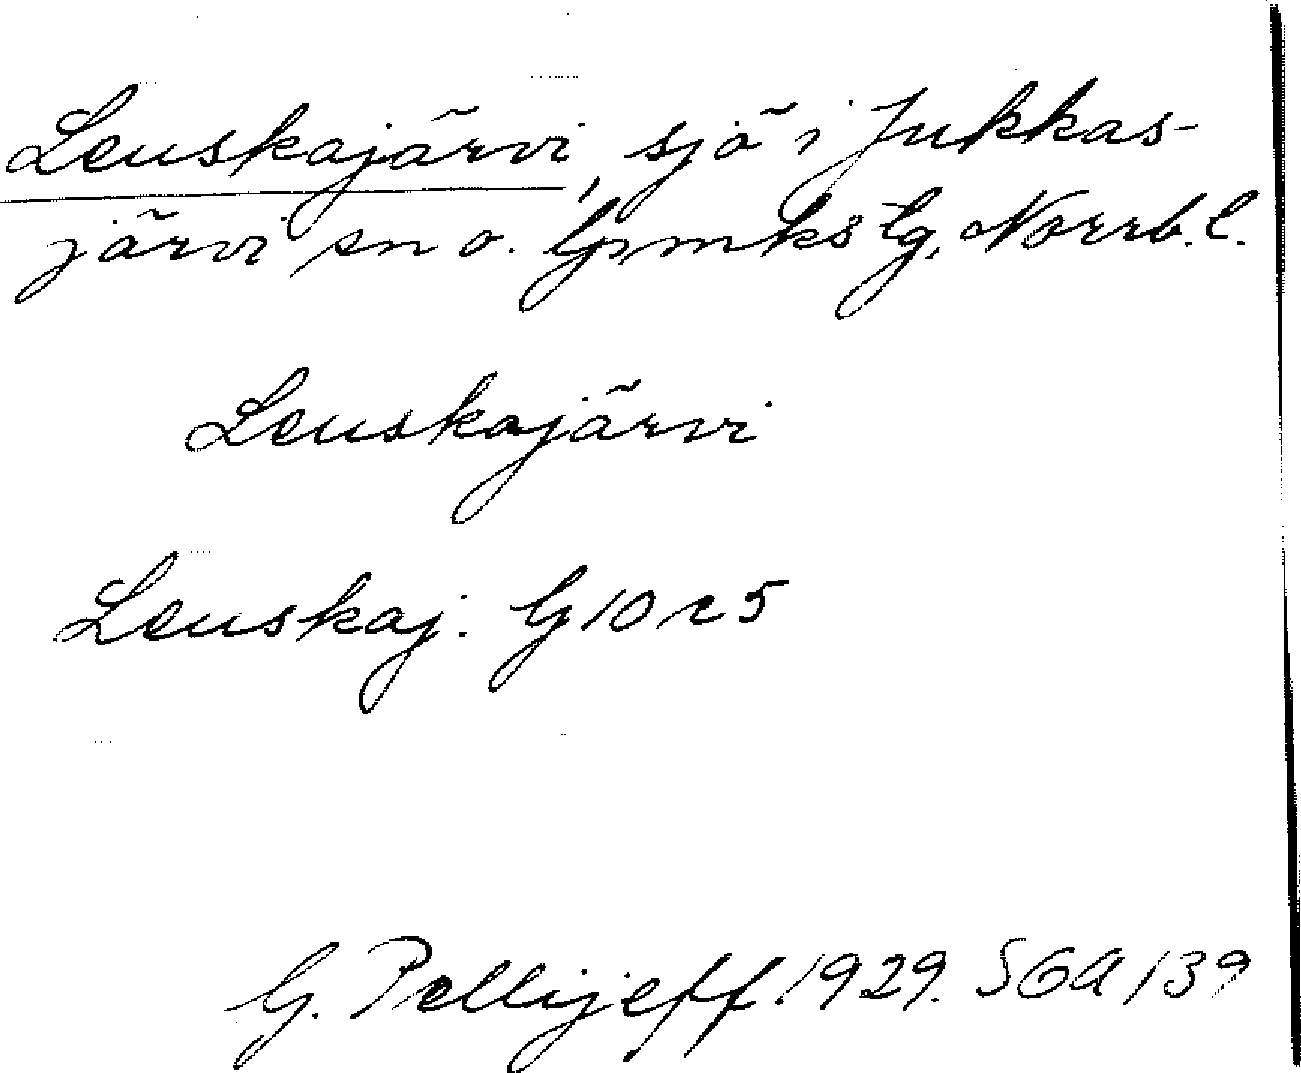 Leuskajärvi, sjö i Jukkas-
järvi sn o. lpmks lg, Norrb. l.
Leuskajärvi
Leuskaj: G 10 r 5
G. Pellijeff. 1929. SGA 139